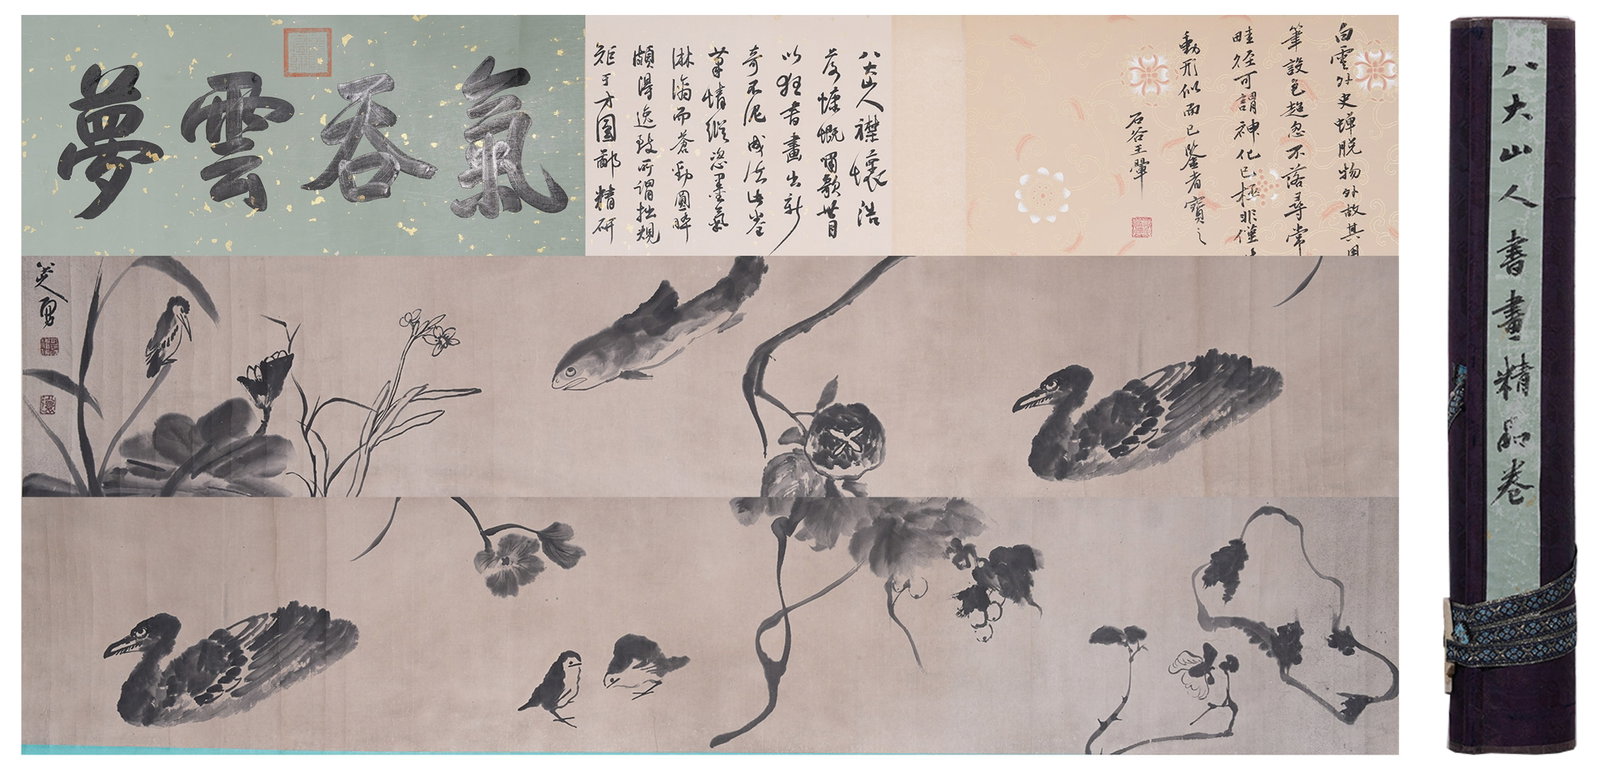 八大山人書畫精品卷
白雲外史蟬脫物外故其用
筆設色超忽不落尋常
畦径可謂神化已極非僅
動形似而已鑒者寶之
石谷王翬
八大山人襟懷浩
落慷慨嘯歌世目
以狂者畫出新
奇不泥成法此卷
筆情縱恣墨氣
淋漓而蒼勁圓晬
頗得逸致所謂拙規
矩于方圓鄙精研
氣吞雲夢